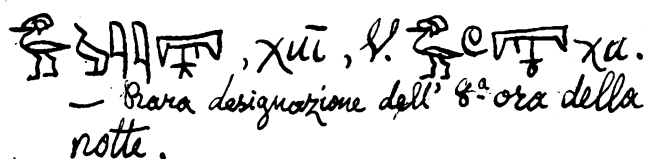 , χuī , V. χa.
— Rara designazione dell' 8ª ora della
notte.